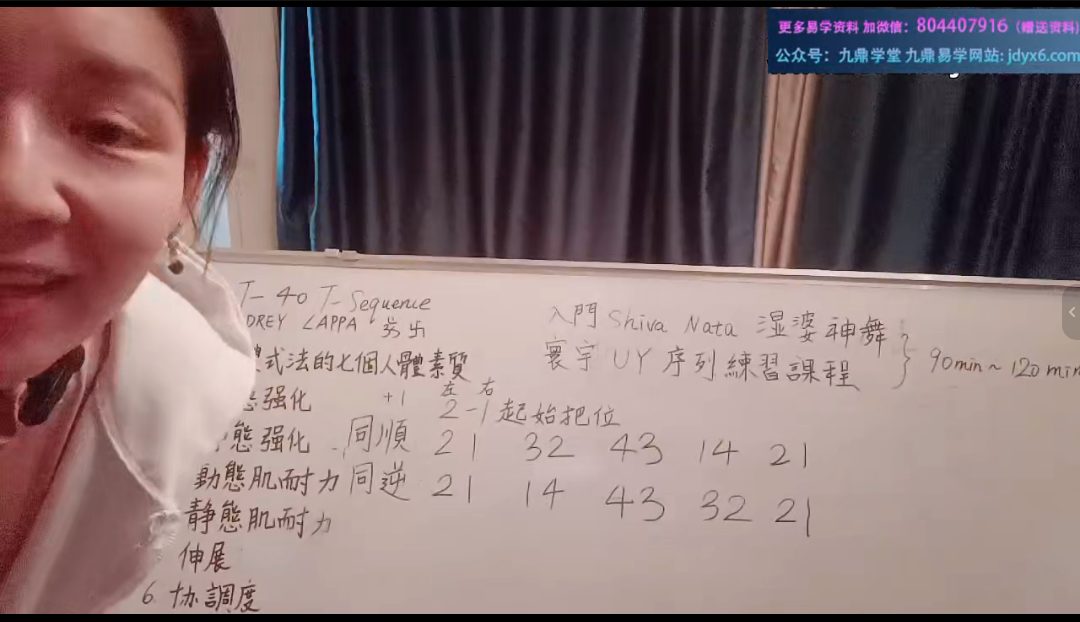 更多易学资料 加微信：804407916（赠送资料）
公众号：九鼎学堂 九鼎易学网站: jdyx6.com
T-40 T-Sequence
DREY LAPPA
式法的七個人體素質
强化
態强化
動態肌耐力
静態肌耐力
伸展
6. 协調度
+1
左 右
2-1 起始把位
同順 21 32 43 14 21
同逆 21 14 43 32 21
入門 Shiva Nata 湿婆神舞
寰宇 UY 序列練習課程
90min~120min